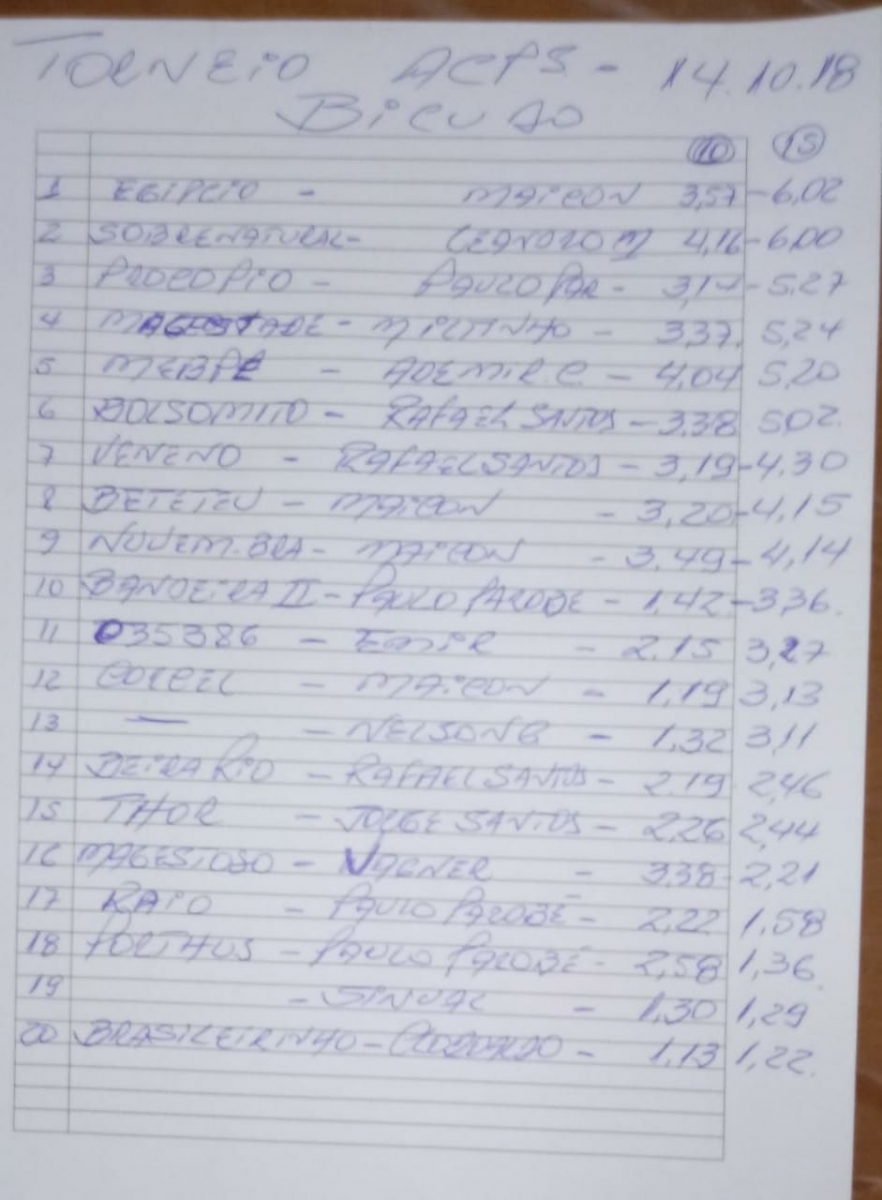 TORNEIO ACPS - 14.10.18
BICUDO
10 15
1 EGIPCIO - MAICON 3,57 - 6,02
2 SOBRENATURAL - LEANDRO M 4,16 - 6,00
3 PROCOPIO - PAULO PAR - 3,14 - 5.27
4 MAGESTADE - MILTINHO - 3,37. 5,24
5 - ADEMIR.C - 4,04 5,20
6 BOLSOMITO - RAFAEL SANTOS - 3.38 502.
7 VENENO - RAFAEL SANTOS - 3,19 - 4.30
8 BETETEU - MAICON - 3,20 - 4,15
9 NOVEM.BRA - MAICON - 3.49 - 4,14
10 BANDEIRA II - PAULO PAROBE - 1,42 - 3,36.
11 035386 - - 2.15 3,27
12 CORCEL - MAICON - 1,19 3,13
13 — - NELSON - 1,32 3,11
14 BEIRA RIO - RAFAEL SANTOS - 2.19 2,46
15 THOR - JORGE SANTOS - 2,26 2,44
16 MAGESTOSO - VAGNER - 3.38 - 2,21
17 RAIO - PAULO PAROBÉ - 2,22 1,58
18 PORTHUS - PAULO PAROBÉ - 2,58 1,36
19 - SINVAL - 1,30 1,29
20 BRASILEIRINHO - - 1,13 1,22.